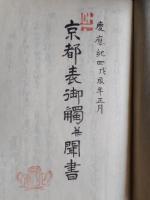 慶應紀四戊辰年正月
京都表御觸並聞書